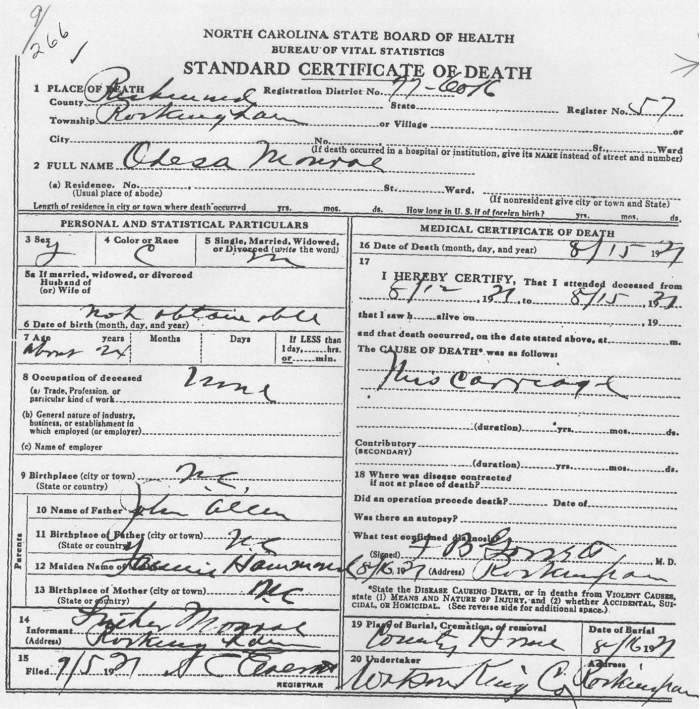 9/
266
NORTH CAROLINA STATE BOARD OF HEALTH
BUREAU OF VITAL STATISTICS
STANDARD CERTIFICATE OF DEATH
1 PLACE OF DEATH Registration District No. 77-
County Richmond State Register No. 57
Township Rockingham or Village or
City No. St. Ward
(If death occurred in a hospital or institution, give its NAME instead of street and number)
2 FULL NAME Odesa Monroe
(a) Residence. No. St. Ward.
(Usual place of abode) (If nonresident give city or town and State)
Length of residence in city or town where death occurred yrs. mos. ds. How long in U. S. if of foreign birth? yrs. mos. ds.
PERSONAL AND STATISTICAL PARTICULARS
3 Sex 4 Color or Race 5 Single, Married, Widowed,
or Divorced (write the word)
C m
5a If married, widowed, or divorced
Husband of
(or) Wife of
not obtainable
6 Date of birth (month, day, and year)
7 Age years Months Days If LESS than
1 day, hrs.
or min.
About 24
8 Occupation of deceased
(a) Trade, Profession, or
particular kind of work
(b) General nature of industry,
business, or establishment in
which employed (or employer)
(c) Name of employer
9 Birthplace (city or town) NC
(State or country)
10 Name of Father John Allen
11 Birthplace of Father (city or town) NC
(State or country)
12 Maiden Name of Hammond
13 Birthplace of Mother (city or town) NC
(State or country)
Parents
14
Informant Luther Monroe
(Address) Rockingham
15
Filed 9/5 1921
REGISTRAR
MEDICAL CERTIFICATE OF DEATH
16 Date of Death (month, day, and year) 8/15 1921
17
I HEREBY CERTIFY, That I attended deceased from
8/12, 1921, to 8/15, 1921
that I saw h alive on , 19
and that death occurred, on the date stated above, at m.
The CAUSE OF DEATH* was as follows:
Miscarriage
(duration) yrs. mos. ds.
Contributory
(SECONDARY)
(duration) yrs. mos. ds.
18 Where was disease contracted
if not at place of death?
Did an operation precede death? Date of
Was there an autopsy?
What test confirmed diagnosis?
(Signed) M. D.
8/16, 1921 (Address) Rockingham
*State the DISEASE CAUSING DEATH, or in deaths from VIOLENT CAUSES,
state (1) MEANS AND NATURE OF INJURY, and (2) whether ACCIDENTAL, SUI-
CIDAL, or HOMICIDAL. (See reverse side for additional space.)
19 Place of Burial, Cremation, or removal Date of Burial
County Home 8/16 1921
20 Undertaker Address
Watson King Co Rockingham